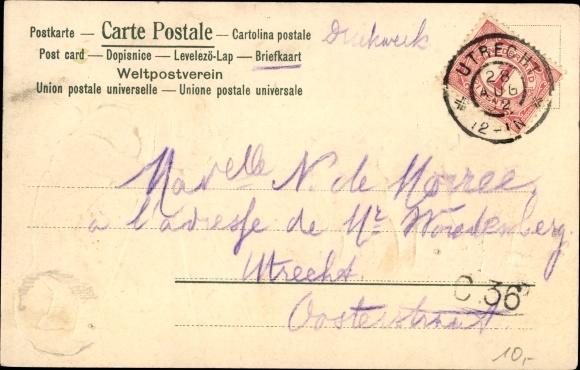 Postkarte — Carte Postale — Cartolina postale
Drukwerk
Post card — Dopisnice — Levelező-Lap — Briefkaart
Weltpostverein
Union postale universelle — Unione postale universale
UTRECHT
28
12-1N
N. de
à l'adresse de Mr
Utrecht.
C.36
Oosterstraat.
10,-